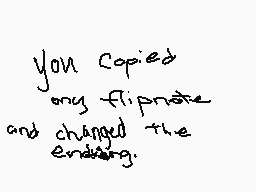 you copied
my flipnote
and changed the
ending.